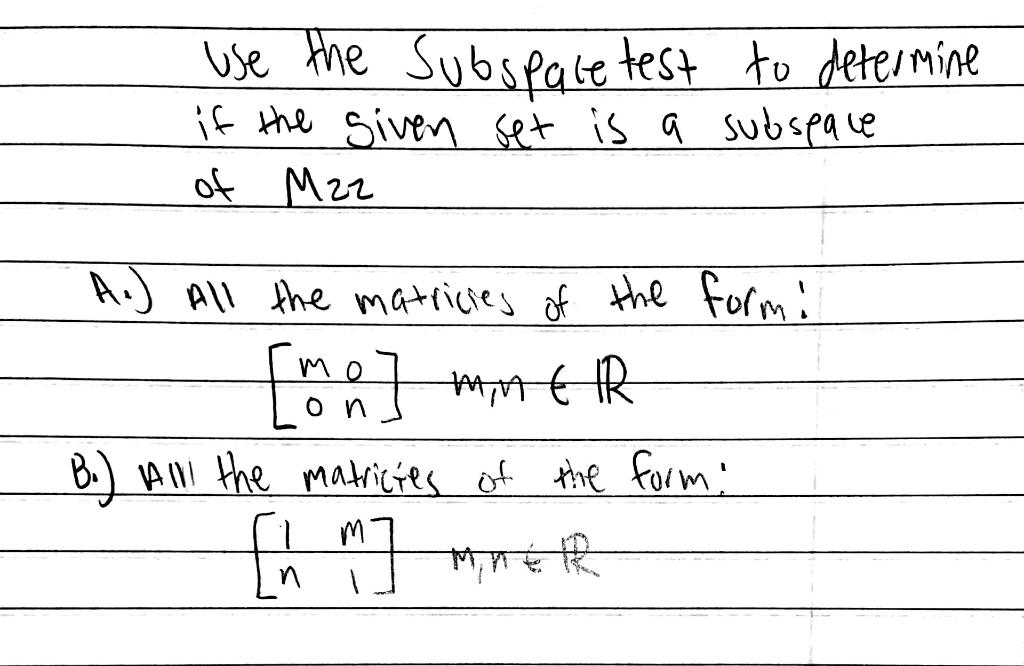 Use the Subspace test to determine
if the given set is a subspace
of M22
A.) All the matricies of the form:
[m 0
0 n] m,n ∈ ℝ
B.) All the matricies of the form:
[1 m
n 1] m,n ∈ ℝ